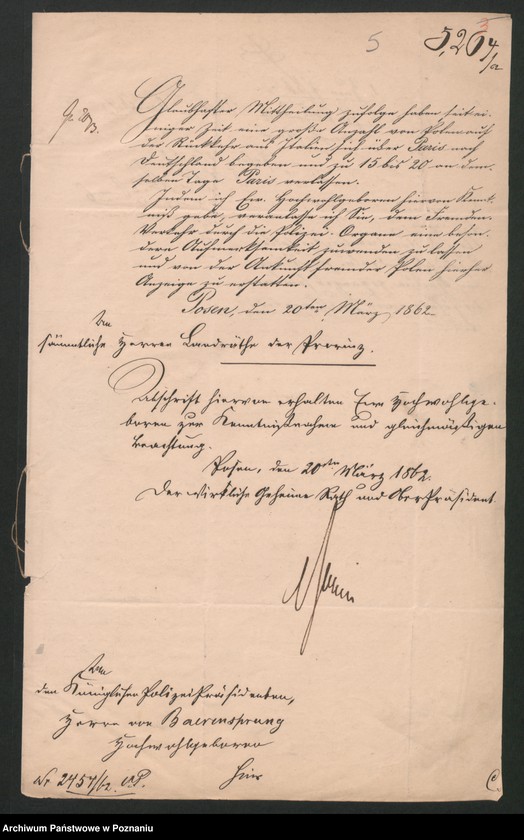 5
3
5,26 4/a
Glaubhafter Mittheilung zufolge haben seit ei-
niger Zeit eine große Anzahl von Polen auf
der Rückkehr aus Italien sich über Paris nach
Deutschland begeben und zu 15 bis 20 an dem-
selben Tage Paris verlassen.
Indem ich Ew. Hochwohlgeboren hiervon Kennt-
niß gebe, veranlasse ich Sie, dem Fremden-
Verkehr durch die Polizei-Organe eine beson-
dere Aufmerksamkeit zuwenden zu lassen
und von der Ankunft fremder Polen hieher
Anzeige zu erstatten.
Posen, den 20ten März 1862
An
sämmtliche Herren Landräthe der Provinz.
Abschrift hiervon erhalten Ew. Hochwohlge-
boren zur Kenntnißnahme und gleichmäßigen
Beachtung.
Posen, den 20ten März 1862.
Der Wirkliche Geheime Rath und OberPräsident
An
den Königlichen Polizei Präsidenten,
Herrn von Baerensprung
Hochwohlgeboren
Hier
Nr 2457/62. O.P.
C.
Archiwum Państwowe w Poznaniu